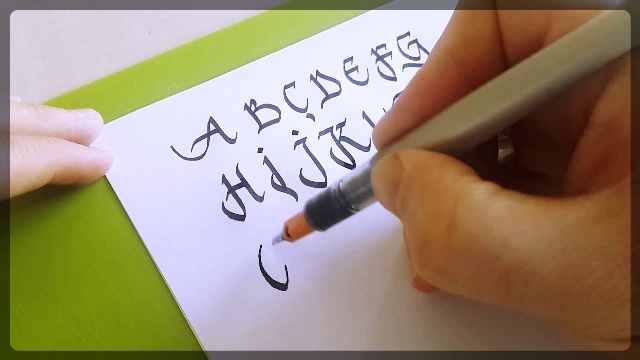 A B C D E F G
H i J K